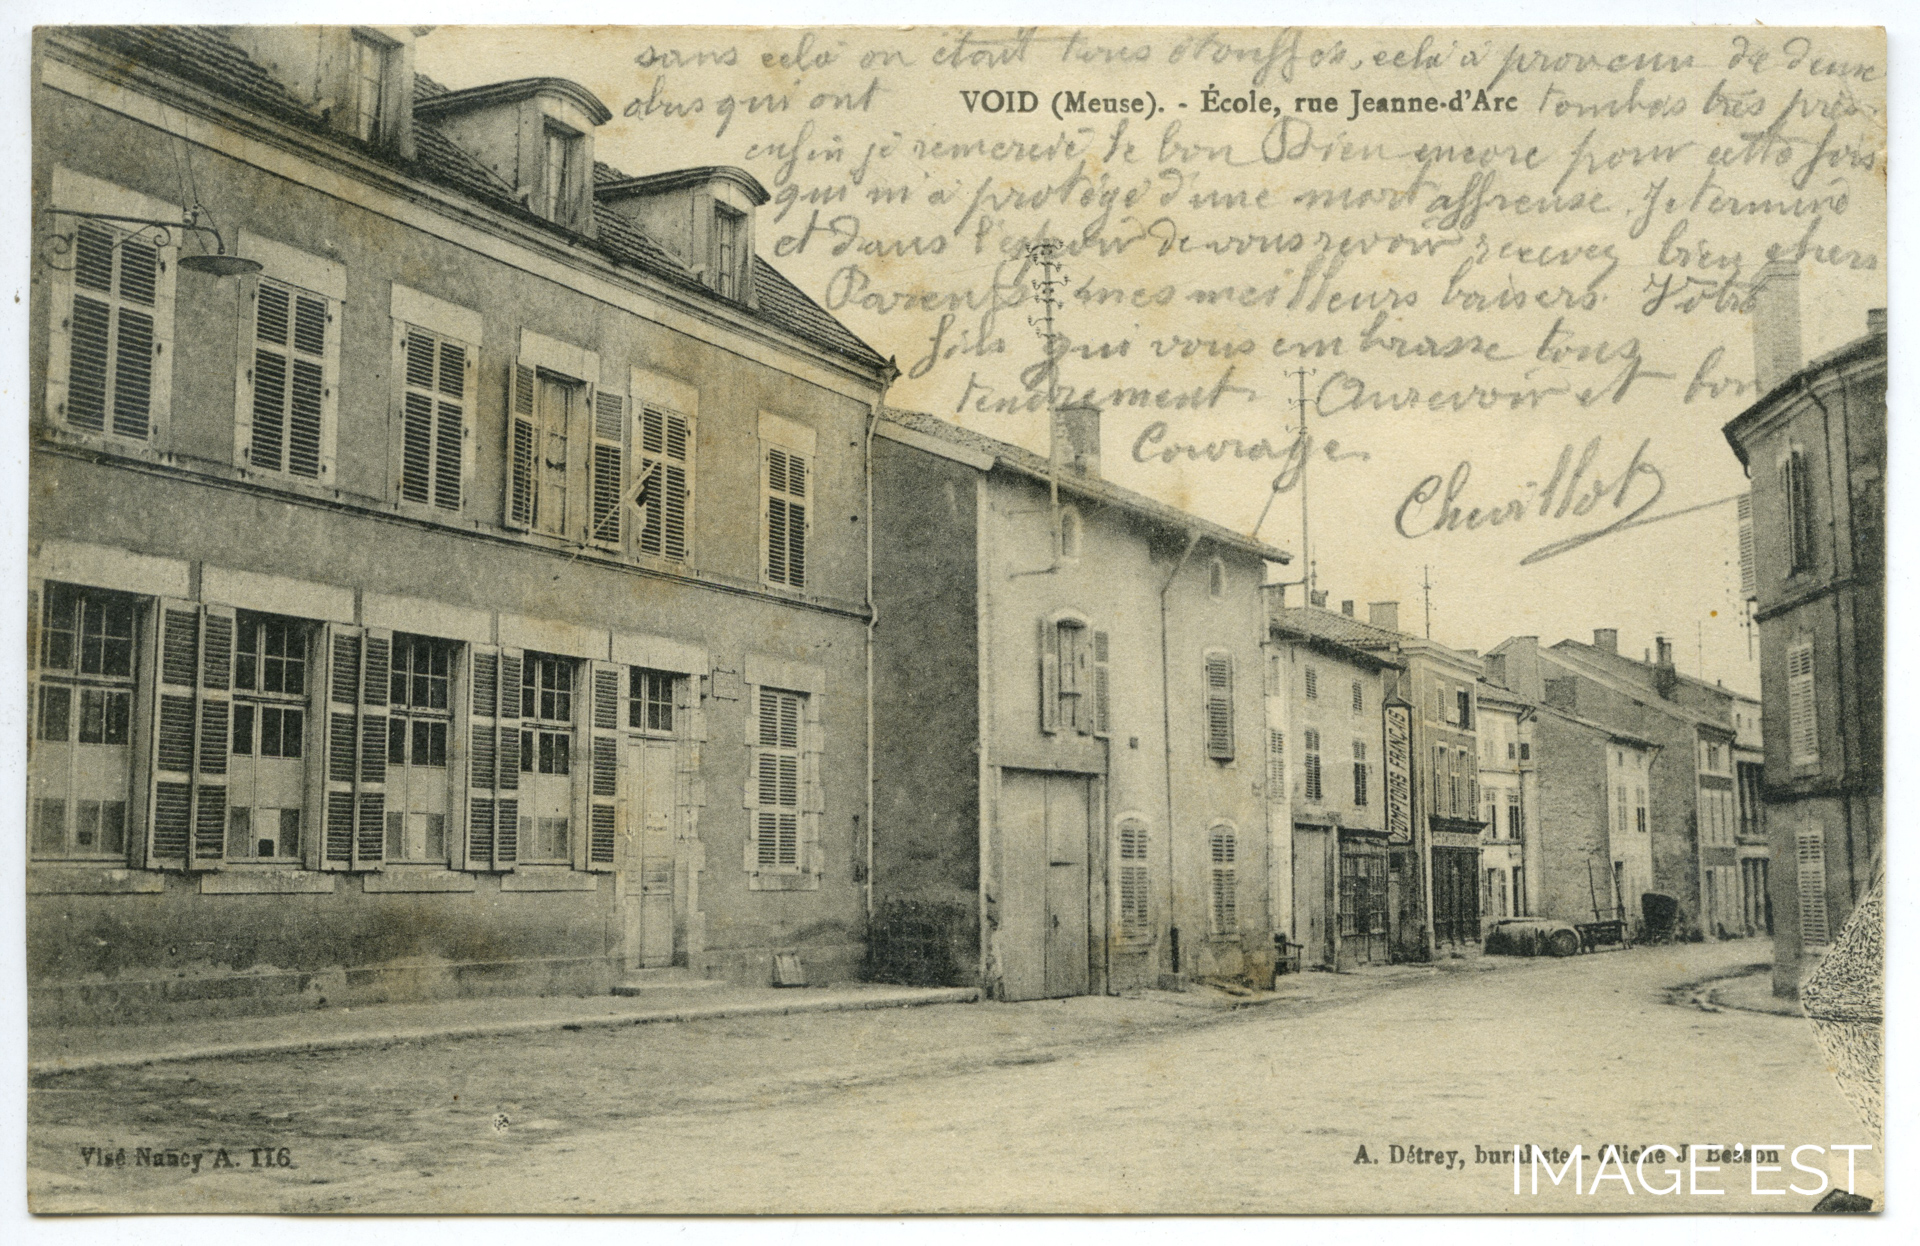 sans cela on était tous étouffés, cela a provenu de deux
obus qui ont tombés très près.
VOID (Meuse). - École, rue Jeanne-d'Arc
enfin je remercie le bon Dieu encore pour cette fois
qui m'a protégé d'une mort affreuse. Je termine
et dans l'espoir de vous revoir recevez bien chers
Parents mes meilleurs baisers. Votre
fils qui vous embrasse tous
tendrement. Aurevoir et bon
Courage.
Chevillot
COMPTOIRS FRANÇAIS
Visé Nancy A. 116
A. Détrey, buraliste - Cliché J. Besson
IMAGE'EST